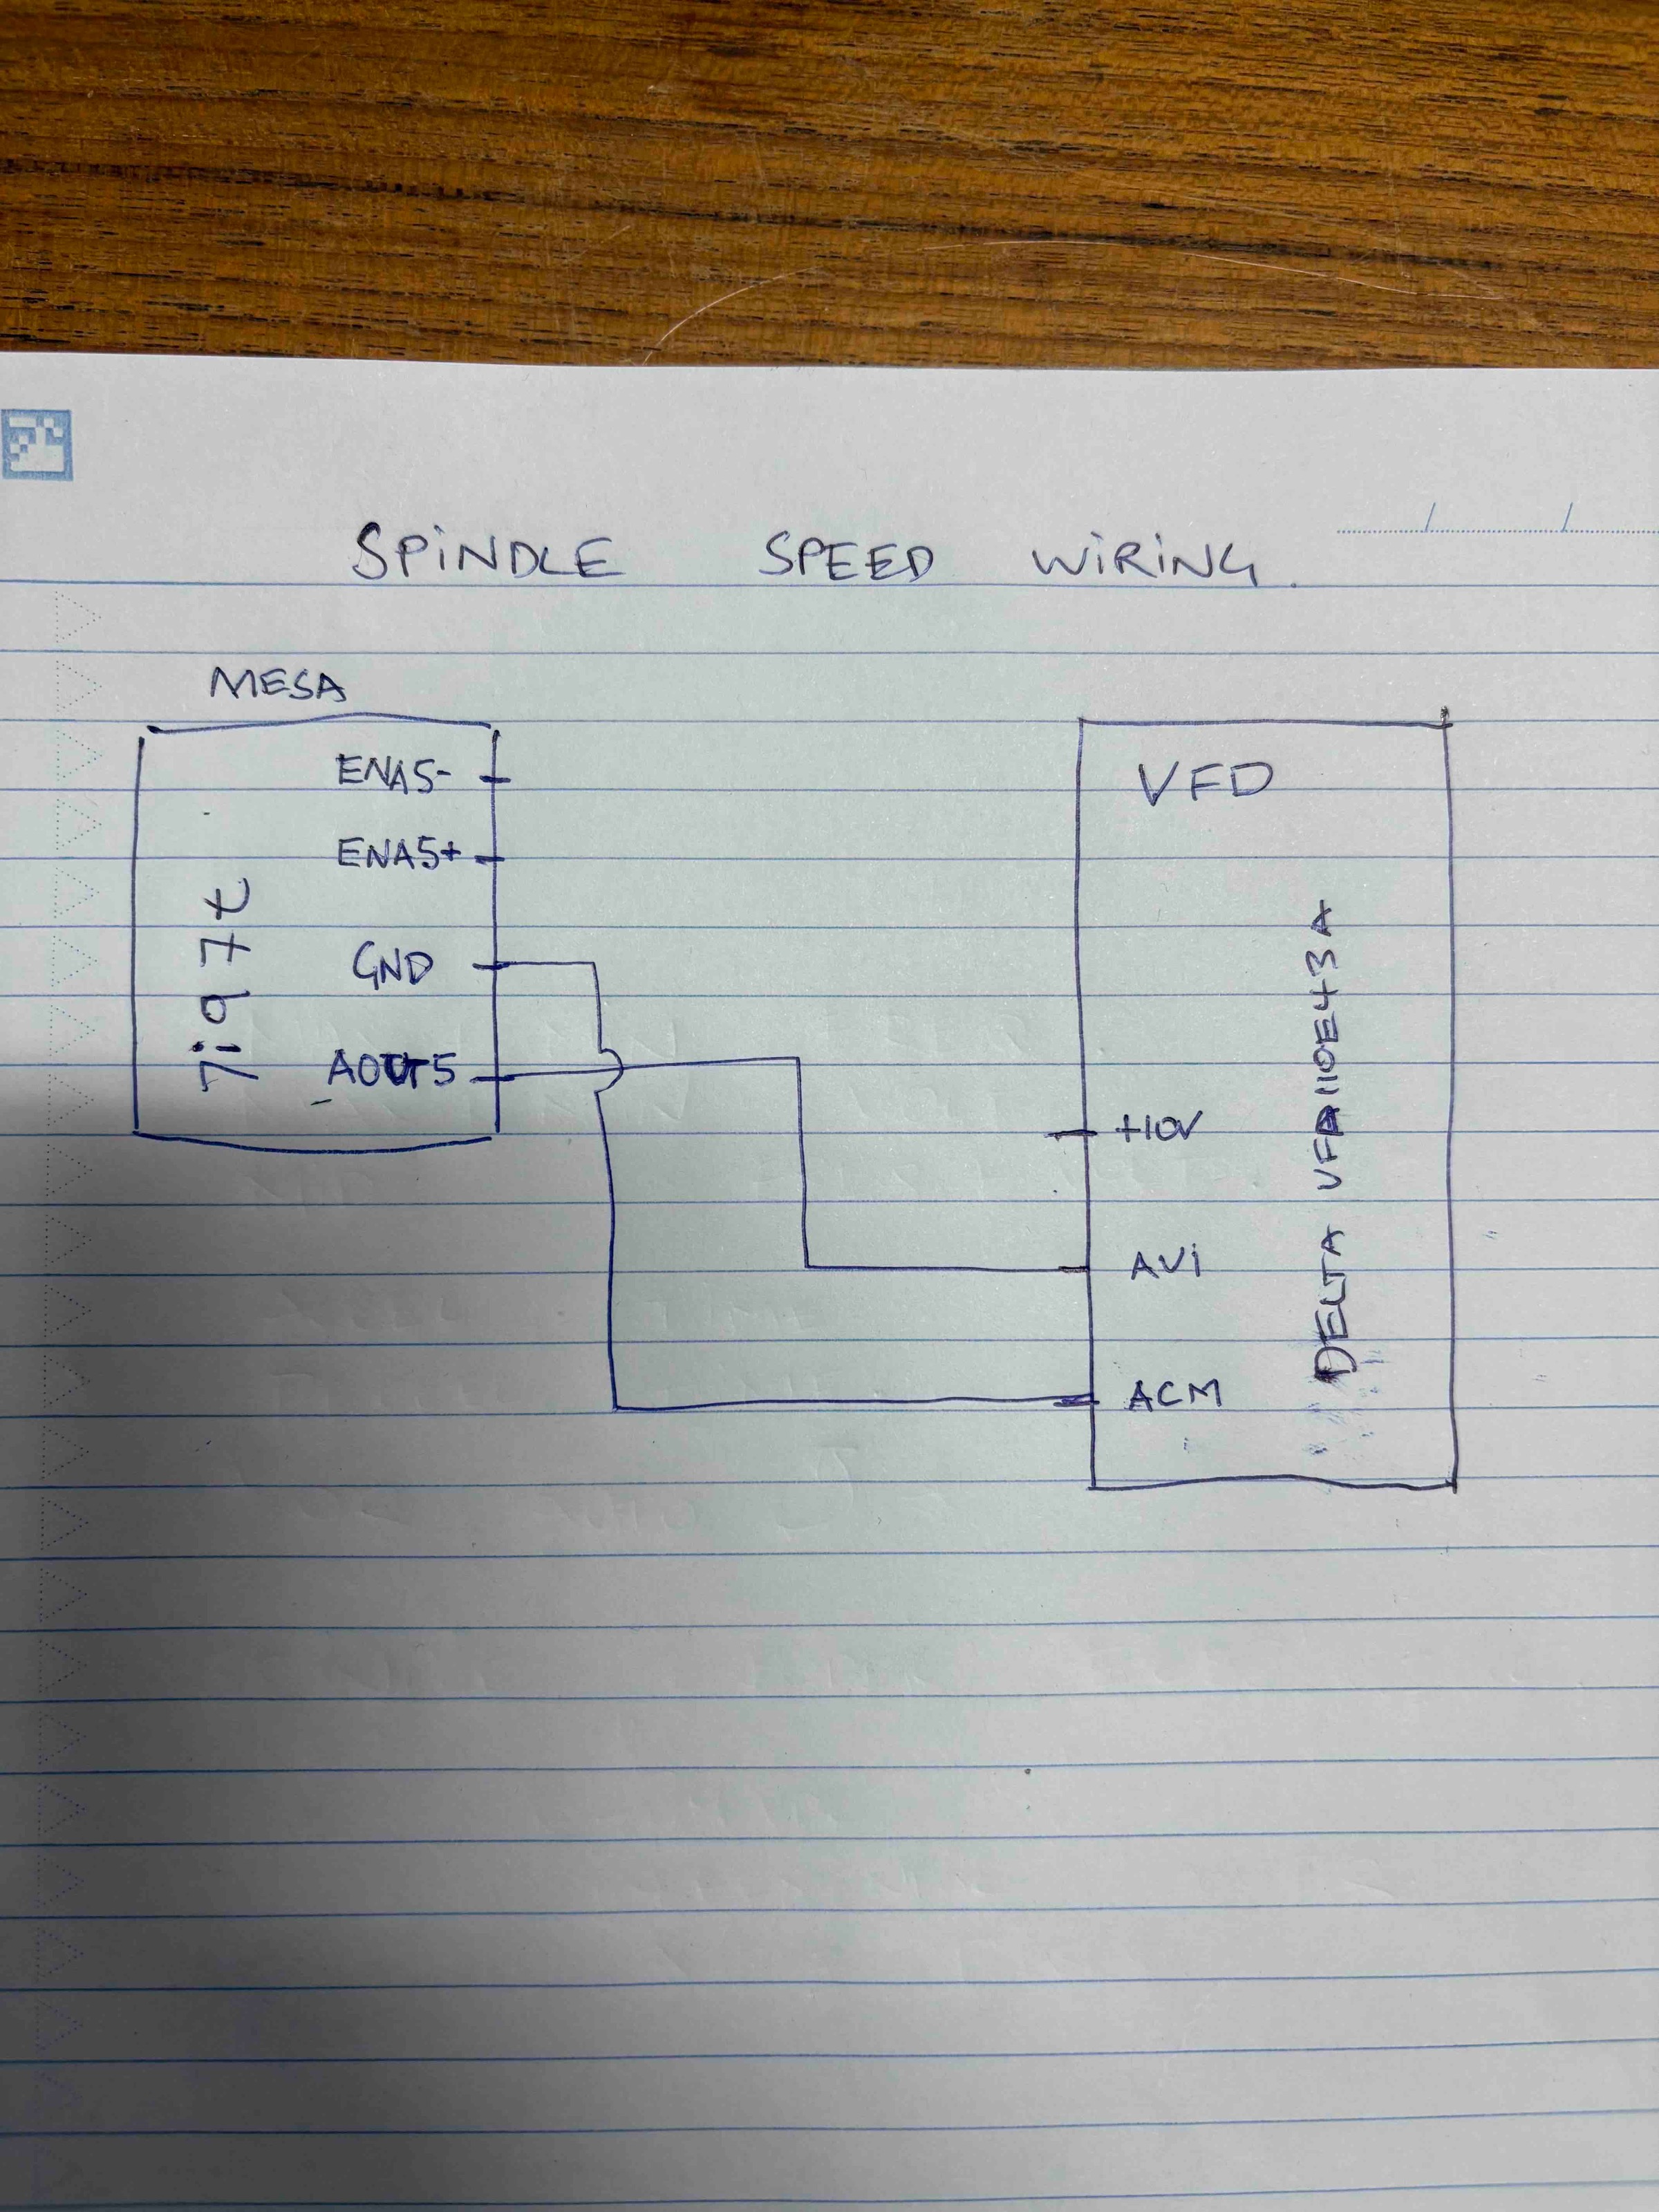 SPINDLE SPEED WIRING.
MESA
7i97t
ENA5-
ENA5+
GND
AOUT5
VFD
+10V
AVI
ACM
DELTA VFD110E43A